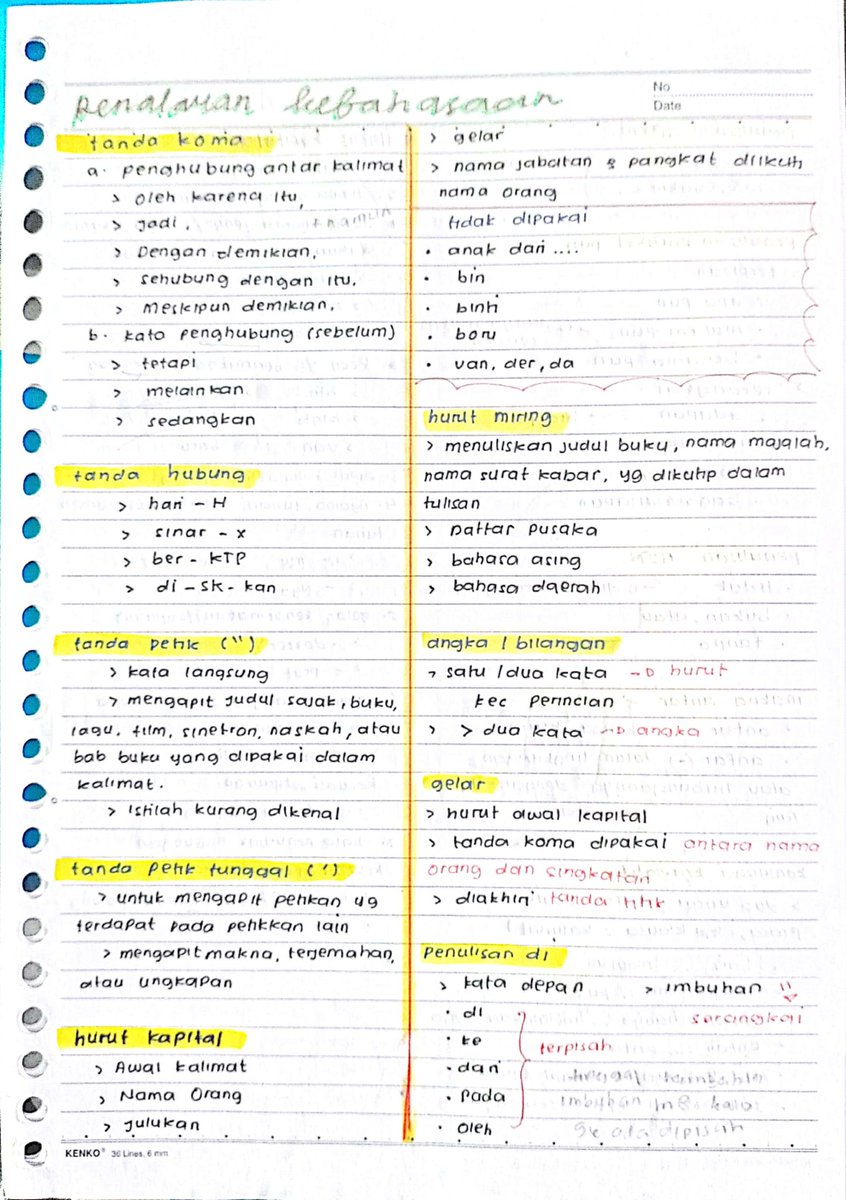 No
Date
Penalaran kebahasaan
tanda koma
a. penghubung antar kalimat
> oleh karena itu,
> jadi,
> Dengan demikian,
> sehubung dengan itu,
> Meskipun demikian,
b. kata penghubung (sebelum)
> tetapi
> melainkan
> sedangkan
tanda hubung
> hari - H
> sinar - x
> ber - KTP
> di - sk - kan
tanda petik (")
> kata langsung
> mengapit judul sajak, buku,
lagu, film, sinetron, naskah, atau
bab buku yang dipakai dalam
kalimat.
> istilah kurang dikenal
tanda petik tunggal (')
> untuk mengapit petikan yg
terdapat pada petikkan lain
> mengapit makna, terjemahan,
atau ungkapan
huruf kapital
> Awal kalimat
> Nama Orang
> julukan
> gelar
> nama jabatan & pangkat diikuti
nama orang
tidak dipakai
• anak dari ....
• bin
• binti
• boru
• van, der, da
huruf miring
> menuliskan judul buku, nama majalah,
nama surat kabar, yg dikutip dalam
tulisan
> Daftar pusaka
> bahasa asing
> bahasa daerah
angka / bilangan
> satu / dua kata → huruf
kec perincian
> > dua kata → angka
gelar
> huruf awal kapital
> tanda koma dipakai antara nama
orang dan singkatan
> diakhiri tanda titik
penulisan di
> kata depan > imbuhan
• di serangkai
• ke
terpisah
• dari
• pada
• oleh
KENKO® 36 Lines, 6 mm